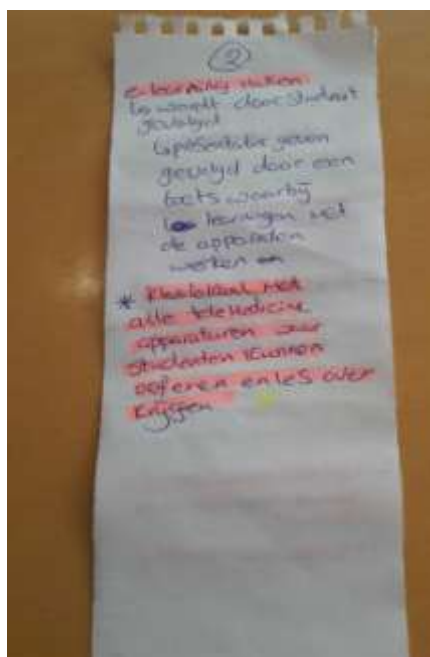 2
e-learning maken
↳ wordt door student
gevolgd
↳ presentatie geven
gevolgd door een
toets waarbij
leerlingen met
de apparaten
werken
* Klaslokaal met
alle telemedicine
apparaturen waar
studenten kunnen
oeferen en les over
krijgen